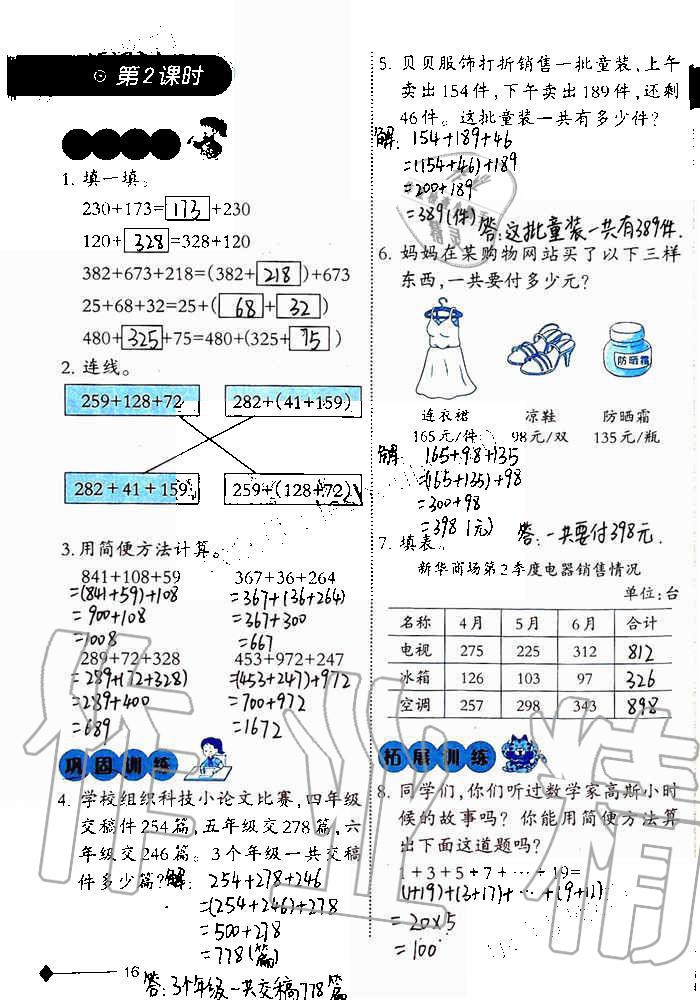 第2课时
1. 填一填。
230+173=173+230
120+328=328+120
382+673+218=(382+218)+673
25+68+32=25+(68+32)
480+325+75=480+(325+75)
2. 连线。
259+128+72 282+(41+159)
282+41+159 259+(128+72)
3. 用简便方法计算。
841+108+59 367+36+264
=(841+59)+108 =367+(136+264)
=900+108 =367+300
=1008 =667
289+72+328 453+972+247
=289+(72+328) =(453+247)+972
=289+400 =700+972
=689 =1672
巩固训练
4. 学校组织科技小论文比赛,四年级
交稿件254篇,五年级交278篇,六
年级交246篇。3个年级一共交稿
件多少篇?解:254+278+246
=(254+246)+278
=500+278
=778(篇)
16
答:3个年级一共交稿778篇
5. 贝贝服饰打折销售一批童装,上午
卖出154件,下午卖出189件,还剩
46件。这批童装一共有多少件?
解:154+189+46
=(154+46)+189
=200+189
=389(件)
答:这批童装一共有389件.
6. 妈妈在某购物网站买了以下三样
东西,一共要付多少元?
防晒霜
连衣裙 凉鞋 防晒霜
165元/件 98元/双 135元/瓶
解:165+98+135
=(165+135)+98
=300+98
=398(元)
答:一共要付398元.
7. 填表。
新华商场第2季度电器销售情况
单位:台
名称 4月 5月 6月 合计
电视 275 225 312 812
冰箱 126 103 97 326
空调 257 298 343 898
拓展训练
8. 同学们,你们听过数学家高斯小时
候的故事吗?你能用简便方法算
出下面这道题吗?
1+3+5+7+…+19=
(1+19)+(3+17)+…+(9+11)
=20×5
=100
作业精